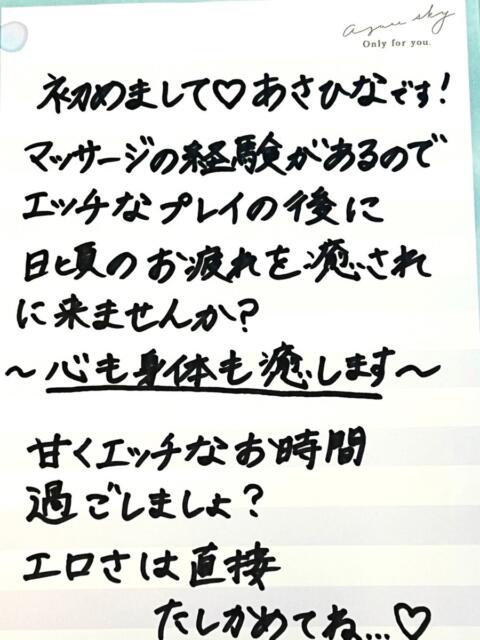 azure sky
Only for you.
初めまして♡あさひなです！
マッサージの経験があるので
エッチなプレイの後に
日頃のお疲れを癒され
に来ませんか？
～心も身体も癒します～
甘くエッチなお時間
過ごしましょ？
エロさは直接
たしかめてね...♡